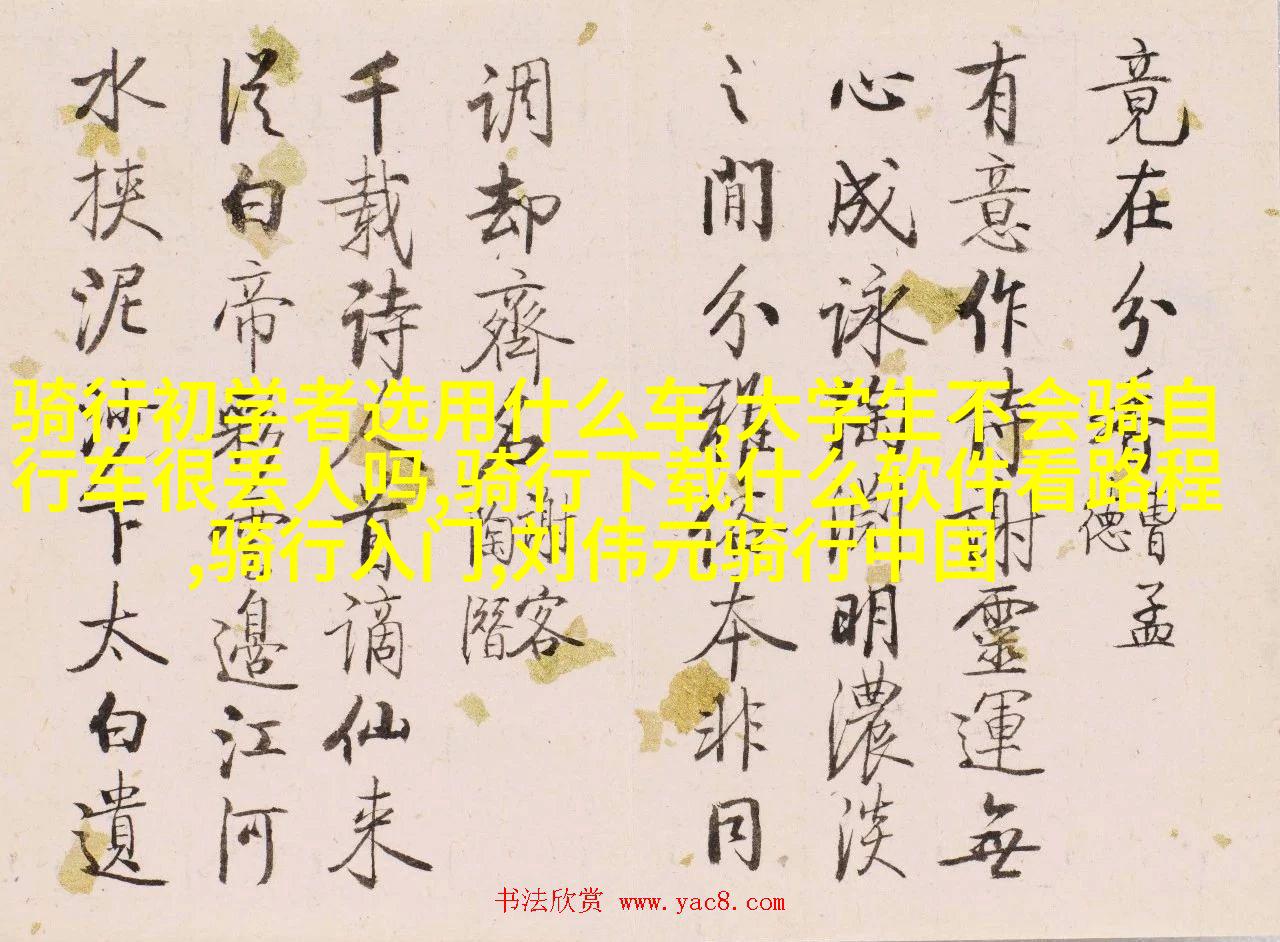 竟在分香曹孟德
有意作诗谢靈運無
心成詠陶淵明濃淡
之間分雅俗本非同
调却齊名謝客陶潛
千载诗人首谪仙来
從白帝彩雲邊江河
水挾泥沙下太白遺
骑行初学者选用什么车,大学生不会骑自
行车很丢人吗,骑行下载什么软件看路程
,骑行入门,刘伟元骑行中国
书法欣赏 www.yac8.com